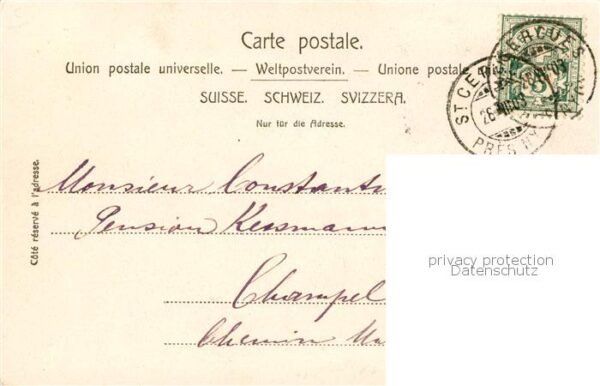 Carte postale.
Union postale universelle. — Weltpostverein. — Unione postale
SUISSE. SCHWEIZ. SVIZZERA.
Nur für die Adresse.
ST CERGUES
26 VII 03
PRES NYON
5
Côté réservé à l'adresse.
Monsieur Constantin
Pension Kessmann
Champel
Chemin
privacy protection
Datenschutz